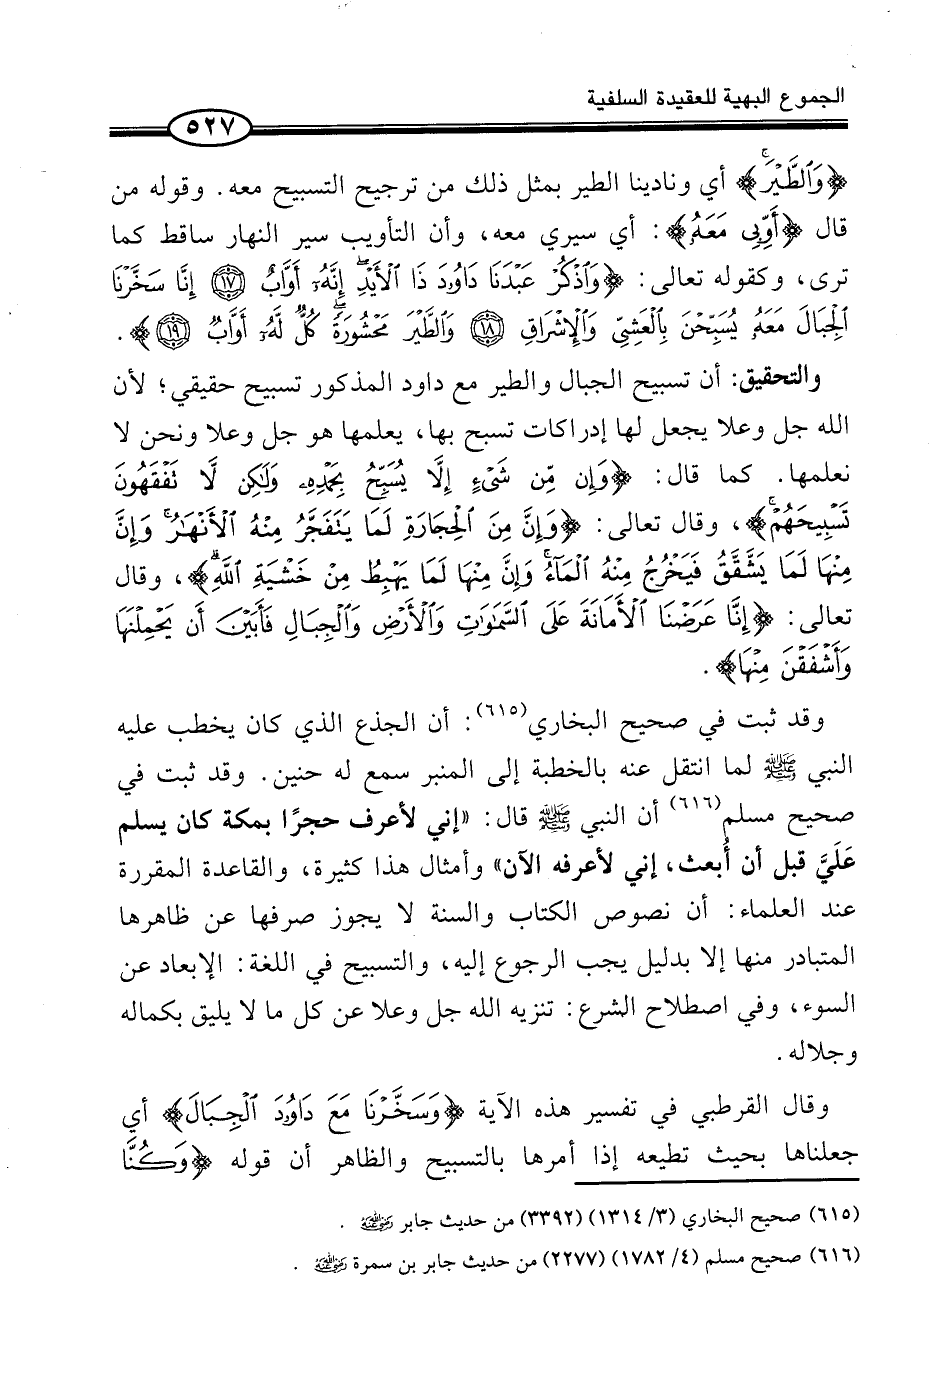 الجموع البهية للعقيدة السلفية
٥٢٧
﴿وَٱلطَّيْرَ﴾ أي ونادينا الطير بمثل ذلك من ترجيح التسبيح معه. وقوله من
قال ﴿أَوِّبِى مَعَهُۥ﴾: أي سيري معه، وأن التأويب سير النهار ساقط كما
ترى، وكقوله تعالى: ﴿وَٱذْكُرْ عَبْدَنَا دَاوُۥدَ ذَا ٱلْأَيْدِ إِنَّهُۥٓ أَوَّابٌ ١٧ إِنَّا سَخَّرْنَا
ٱلْجِبَالَ مَعَهُۥ يُسَبِّحْنَ بِٱلْعَشِىِّ وَٱلْإِشْرَاقِ ١٨ وَٱلطَّيْرَ مَحْشُورَةً كُلٌّ لَّهُۥٓ أَوَّابٌ ١٩﴾.
والتحقيق: أن تسبيح الجبال والطير مع داود المذكور تسبيح حقيقي؛ لأن
الله جل وعلا يجعل لها إدراكات تسبح بها، يعلمها هو جل وعلا ونحن لا
نعلمها. كما قال: ﴿وَإِن مِّن شَىْءٍ إِلَّا يُسَبِّحُ بِحَمْدِهِۦ وَلَٰكِن لَّا تَفْقَهُونَ
تَسْبِيحَهُمْ﴾، وقال تعالى: ﴿وَإِنَّ مِنَ ٱلْحِجَارَةِ لَمَا يَتَفَجَّرُ مِنْهُ ٱلْأَنْهَٰرُ وَإِنَّ
مِنْهَا لَمَا يَشَّقَّقُ فَيَخْرُجُ مِنْهُ ٱلْمَآءُ وَإِنَّ مِنْهَا لَمَا يَهْبِطُ مِنْ خَشْيَةِ ٱللَّهِ﴾، وقال
تعالى: ﴿إِنَّا عَرَضْنَا ٱلْأَمَانَةَ عَلَى ٱلسَّمَٰوَٰتِ وَٱلْأَرْضِ وَٱلْجِبَالِ فَأَبَيْنَ أَن يَحْمِلْنَهَا
وَأَشْفَقْنَ مِنْهَا﴾.
وقد ثبت في صحيح البخاري(٦١٥): أن الجذع الذي كان يخطب عليه
النبي ﷺ لما انتقل عنه بالخطبة إلى المنبر سمع له حنين. وقد ثبت في
صحيح مسلم(٦١٦) أن النبي ﷺ قال: «إني لأعرف حجرًا بمكة كان يسلم
عَلَيَّ قبل أن أُبعث، إني لأعرفه الآن» وأمثال هذا كثيرة، والقاعدة المقررة
عند العلماء: أن نصوص الكتاب والسنة لا يجوز صرفها عن ظاهرها
المتبادر منها إلا بدليل يجب الرجوع إليه، والتسبيح في اللغة: الإبعاد عن
السوء، وفي اصطلاح الشرع: تنزيه الله جل وعلا عن كل ما لا يليق بكماله
وجلاله.
وقال القرطبي في تفسير هذه الآية ﴿وَسَخَّرْنَا مَعَ دَاوُۥدَ ٱلْجِبَالَ﴾ أي
جعلناها بحيث تطيعه إذا أمرها بالتسبيح والظاهر أن قوله ﴿وَكُنَّا
(٦١٥) صحيح البخاري (٣/ ١٣١٤) (٣٣٩٢) من حديث جابر رضي الله عنه.
(٦١٦) صحيح مسلم (٤/ ١٧٨٢) (٢٢٧٧) من حديث جابر بن سمرة رضي الله عنه.